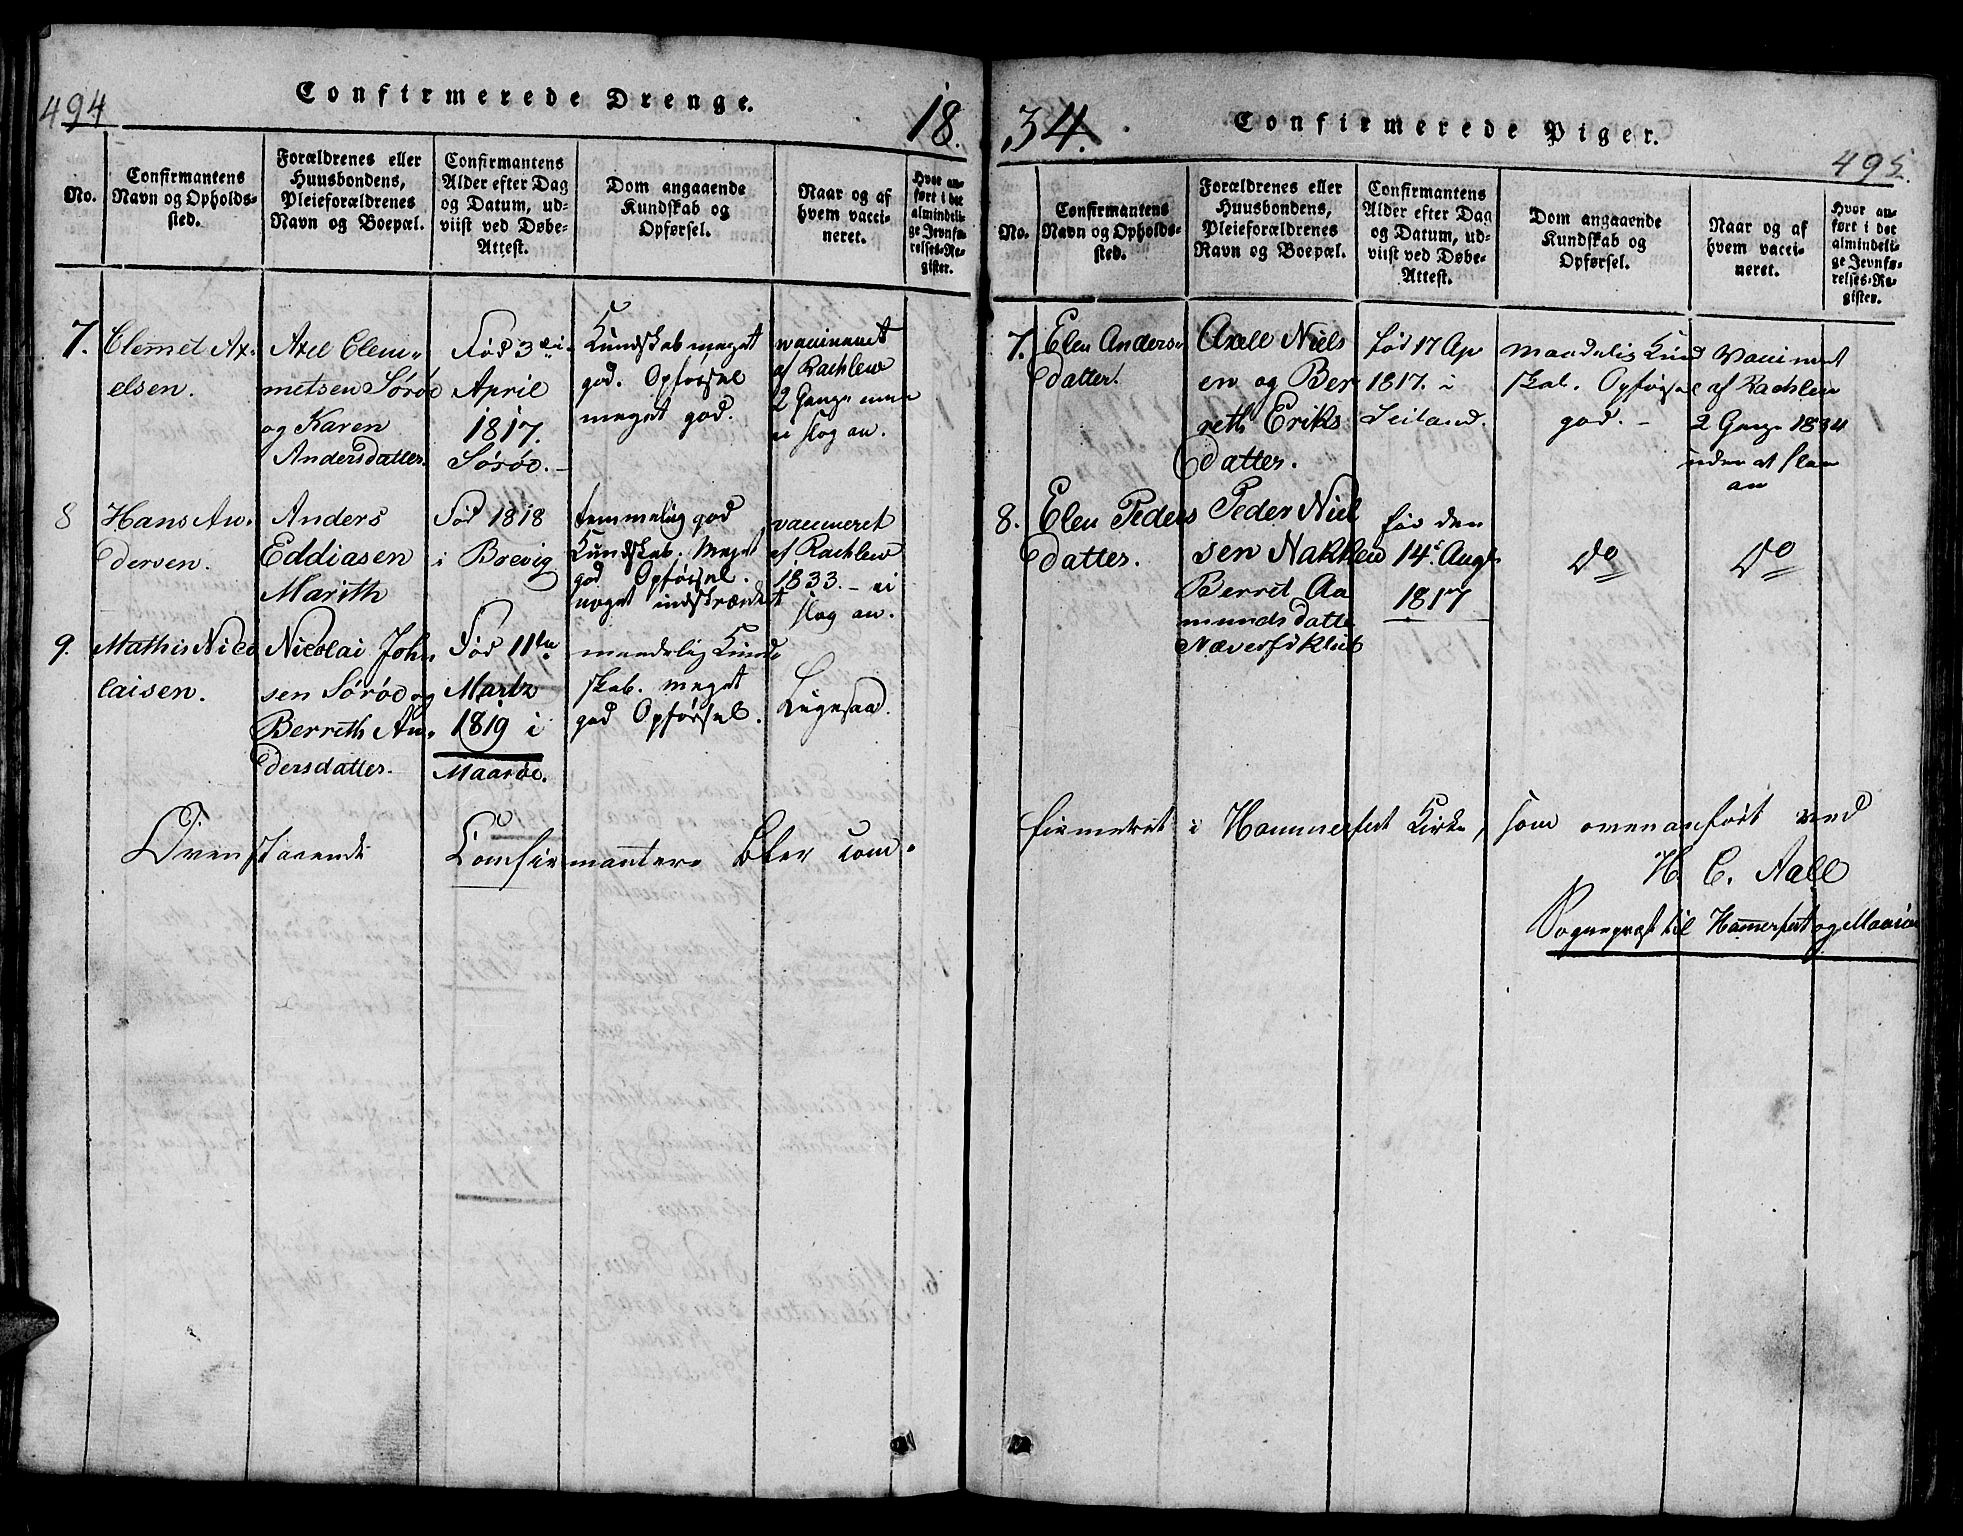 494
Confirmerede Drenge.
18.
No.
Confirmantens
Navn og Opholds-
sted.
Forældrenes eller
Huusbondens,
Pleieforældrenes
Navn og Boepæl.
Confirmantens
Alder efter Dag
og Datum, ud-
viist ved Døbe-
Attest.
Dom angaaende
Kundskab og
Opførsel.
Naar og af
hvem vacci-
neret.
Hvor an-
ført i det
almindeli-
ge Jevnfø-
relses-Re-
gister.
7.
Clemet Ax-
elsen.
Axel Clem-
metsen Sørøe
og Karen
Andersdatter.
Fød 3
April
1817.
Sørøe.
Kundskab meget
god. Opførsel
meget god.
vaccineret
af Rachlew
2 Gange
ei slog an.
8
Hans An-
dersen.
Anders
Eddiasen
Marith
Fød 1818
i Brevig
temmelig god
Kundskab. Meget
god Opførsel.
noget indskrænket
vaccineret
af Rachlew
1833. – ei
slog an.
9.
Mathis Nico
laisen.
Nicolai John
sen Sørøe og
Berreth An-
dersdatter.
Fød 11te
Martz
1819 i
Maasøe.
maadelig Kund-
skab. meget
god Opførsel.
Ligesaa.
Ovenstaaende Confirmanter blev con-
34.
Confirmerede Piger.
495.
No.
Confirmantens
Navn og Opholds-
sted.
Forældrenes eller
Huusbondens,
Pleieforældrenes
Navn og Boepæl.
Confirmantens
Alder efter Dag
og Datum, ud-
viist ved Døbe-
Attest.
Dom angaaende
Kundskab og
Opførsel.
Naar og af
hvem vacci-
neret.
Hvor an-
ført i det
almindeli-
ge Jevnfø-
relses-Re-
gister.
7.
Elen Anders-
datter.
Axell Niels
en og Ber
reth Eriks
datter.
fød 17 Ap
1817. i
Seiland.
maadelig Kund
skab. Opførsel
god. –
Vaccineret
af Rachlew
2 Gange 1834
uden at slaa
an
8.
Elen Peders
datter.
Peder Niel
sen Nakken
Berret Aa
munds datter
Næverfiklub
fød den
14. Augt
1817
Do
Do
firmeret i Hammerfest Kirke, som ovenanført ved
H. C. Aall
Sognepræst til Hamerfest og Maasøe